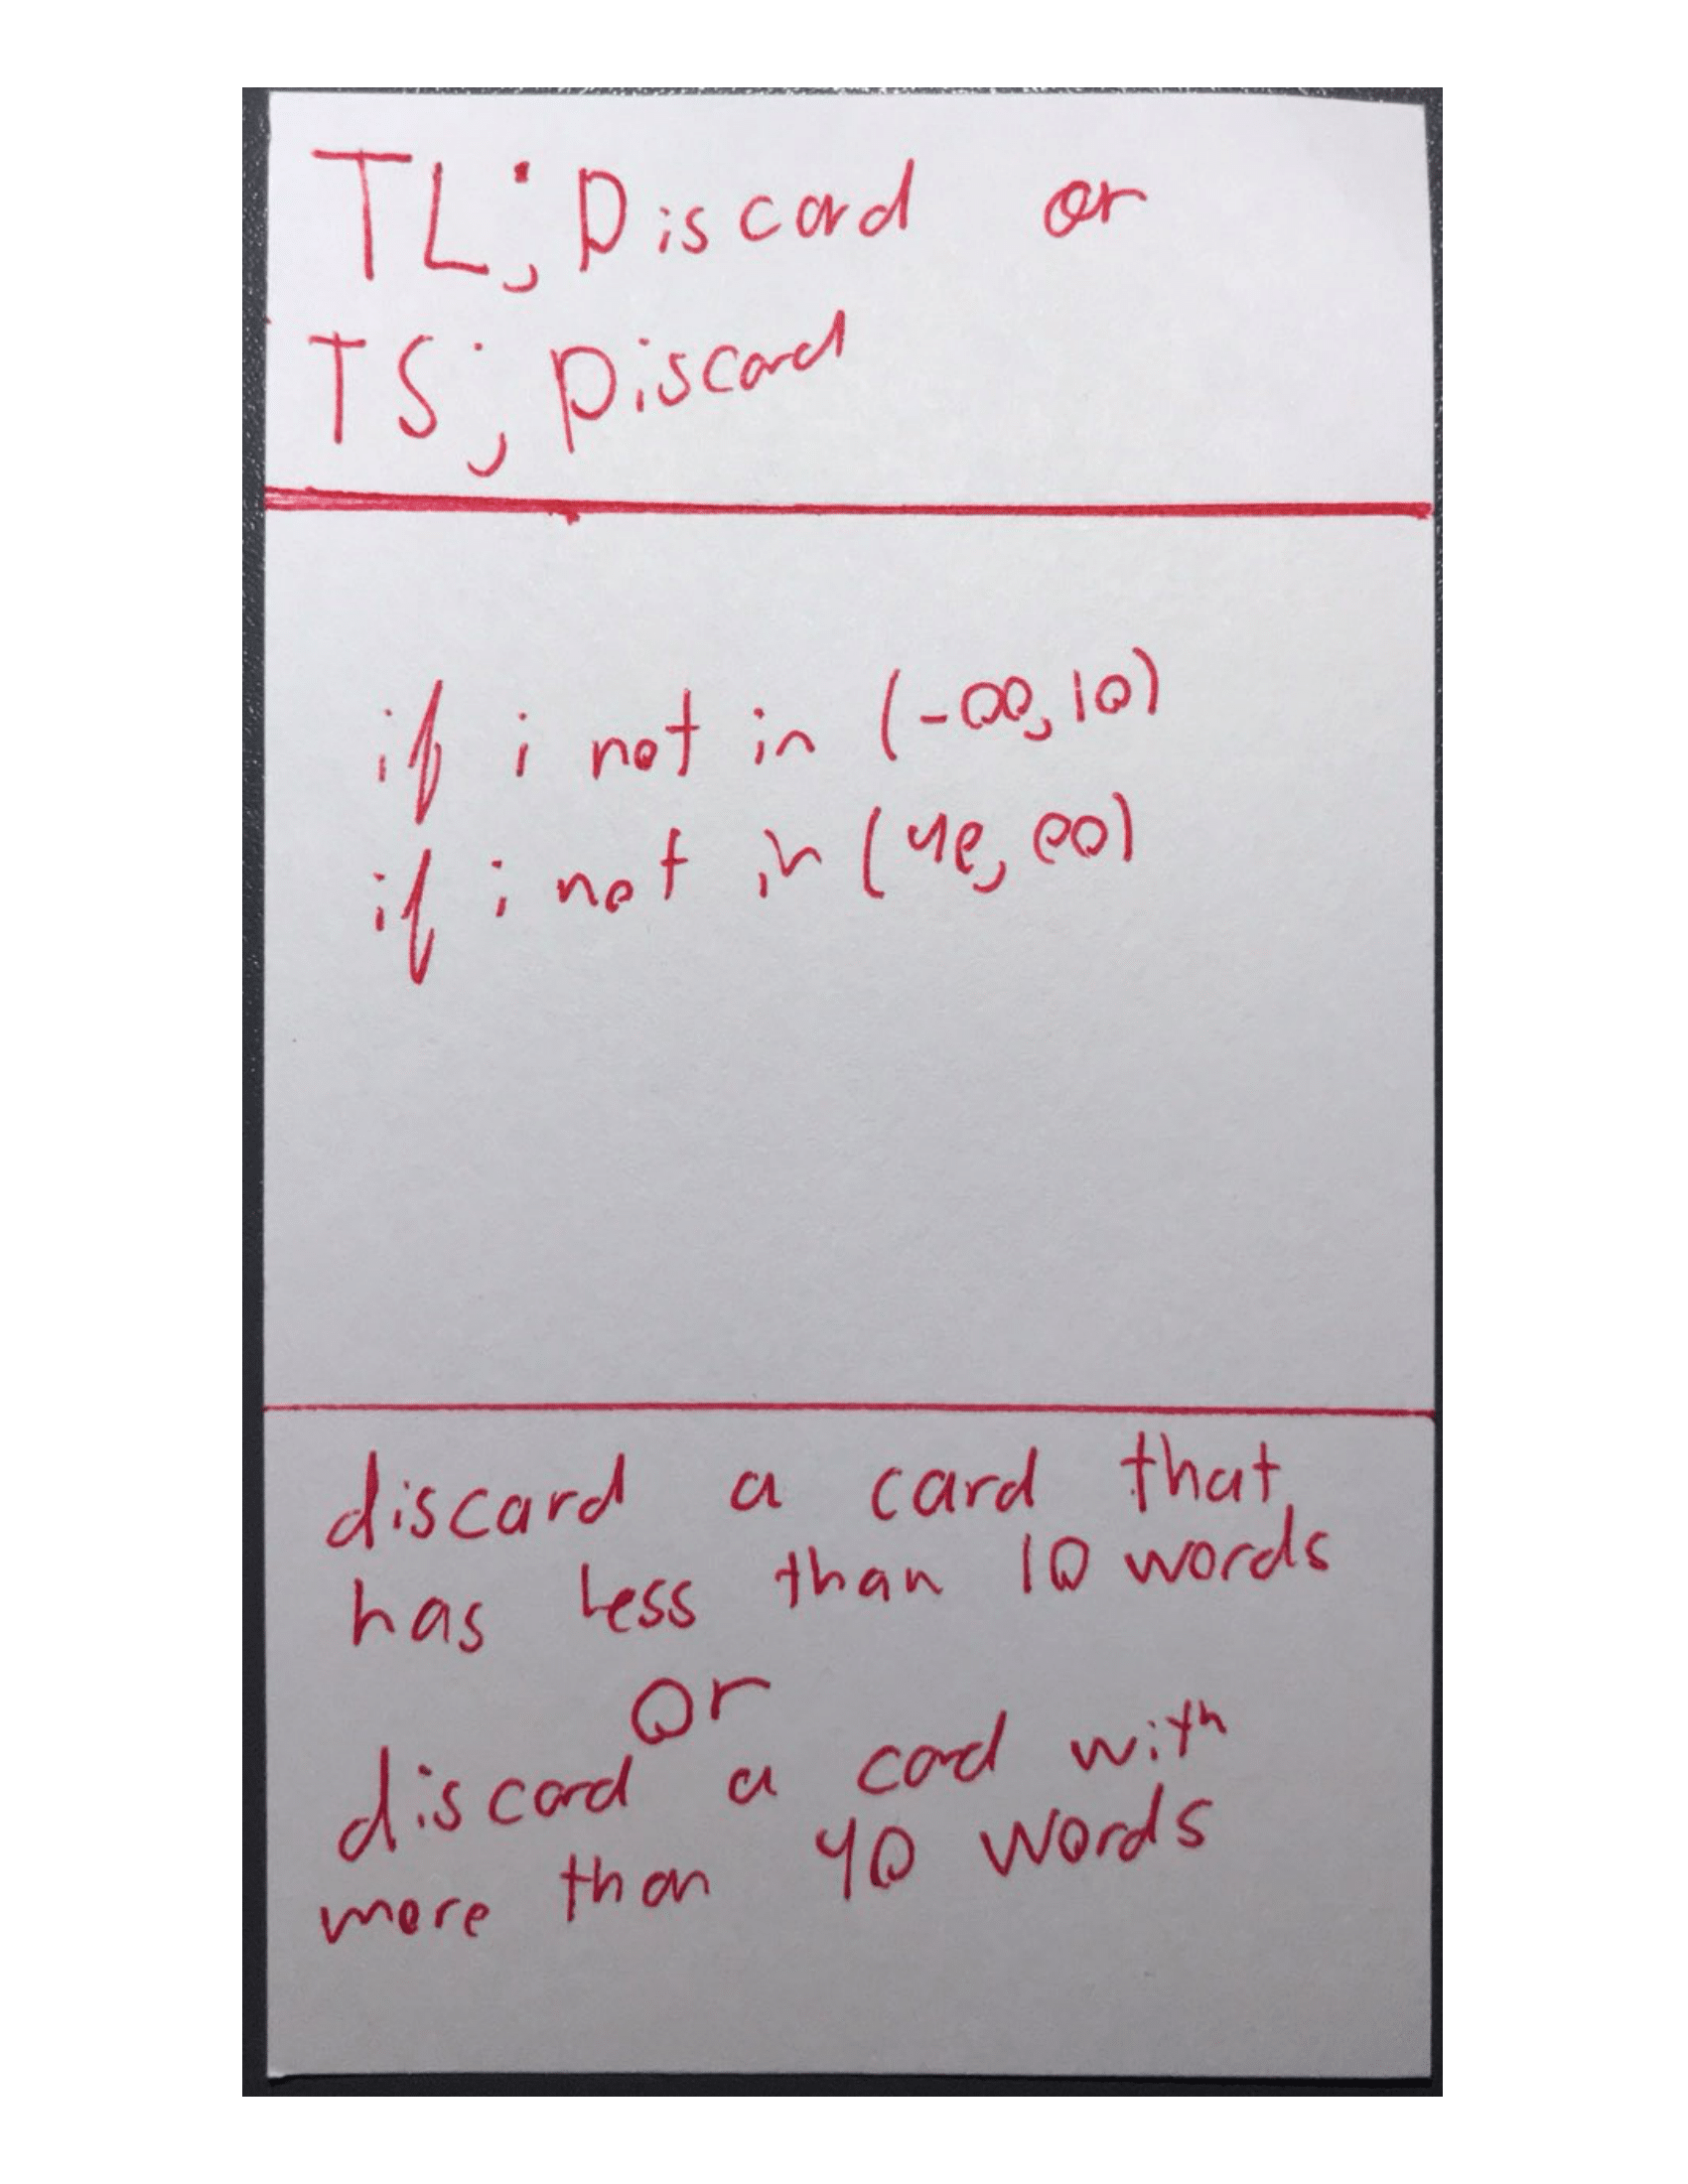 TL; Discard or
TS; Discard
if i not in (-∞, 10)
if i not in (40, ∞)
discard a card that
has less than 10 words
or
discard a card with
more than 40 words